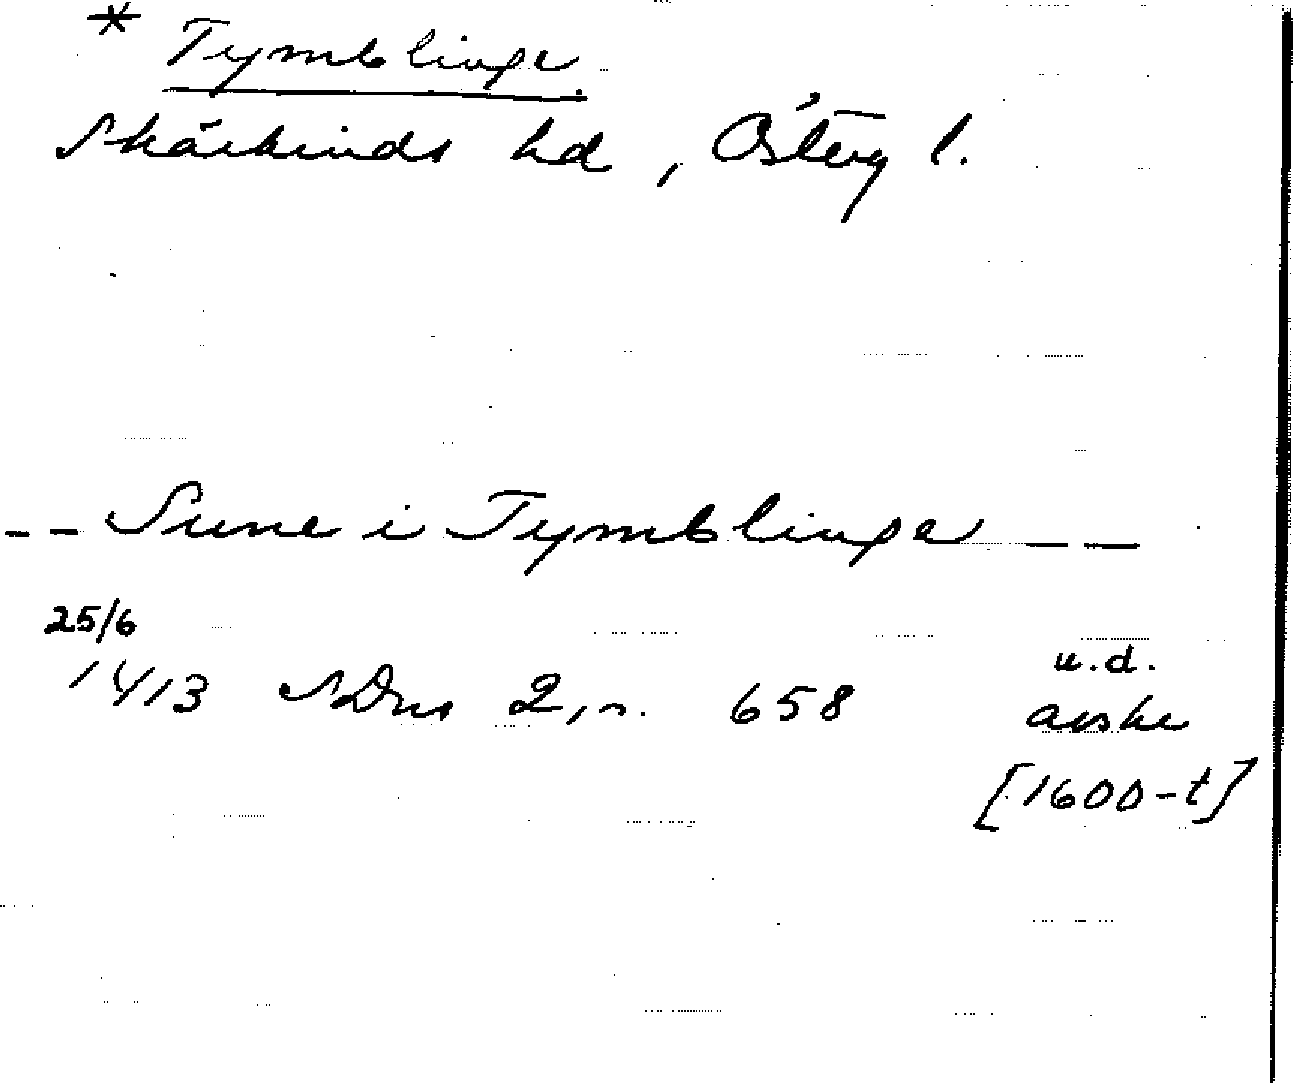 * Tymblinge
Skärkinds hd, Österg l.
-- Sune i Tymblinge --
25/6
1413 SDns 2, n. 658
u.d.
avskr
[1600-t]